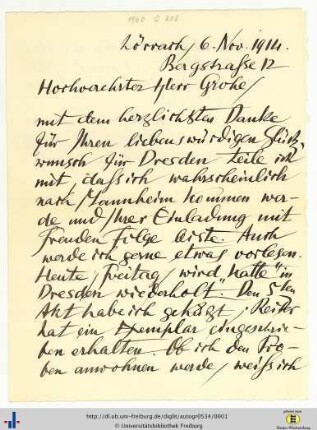 Lörrach, 6. Nov. 1914.
Bergstraße 12
Hochverehrter Herr Grohe,
mit dem herzlichsten Danke
für Ihren liebenswürdigen Glück-
wunsch für Dresden teile ich
mit, dass ich wahrscheinlich
nach Mannheim kommen wer-
de und Ihrer Einladung mit
Freuden Folge leiste. Auch
werde ich gerne etwas vorlesen.
Heute, Freitag, wird "Kätte" in
Dresden wiederholt. Den 5ten
Akt habe ich gekürzt; Reiter
hat ein Exemplar eingeschrie-
ben erhalten. Ob ich den Pro-
ben anwohnen werde, weiß ich
http://dl.ub.uni-freiburg.de/diglit/autogr0534/0001
© Universitätsbibliothek Freiburg